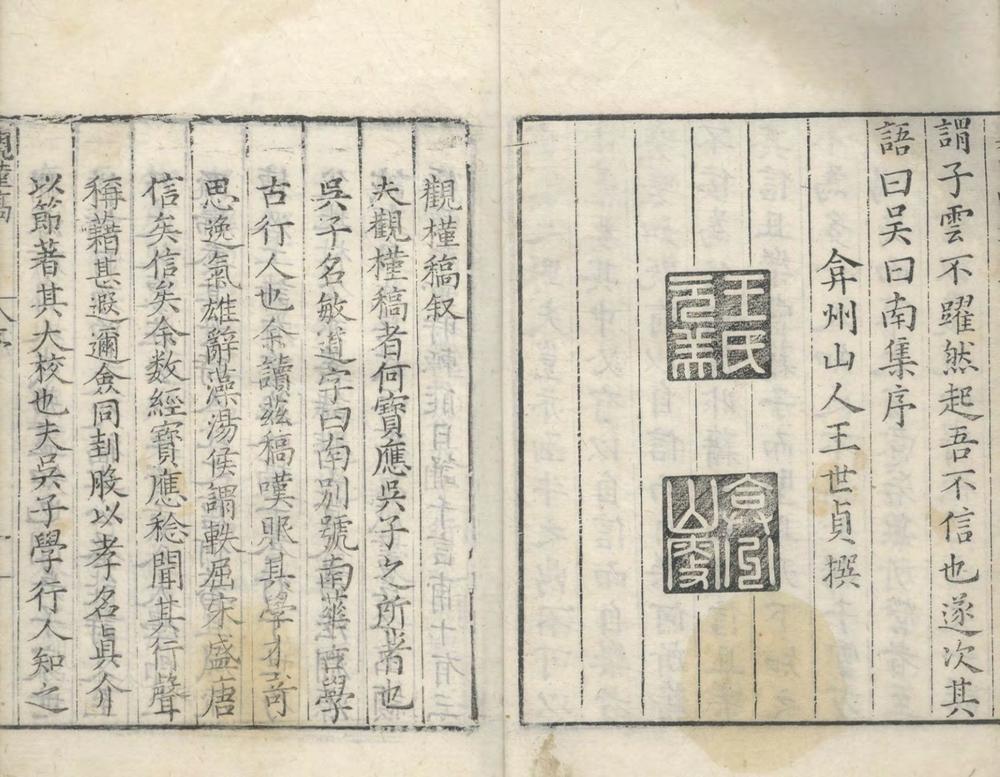 謂子雲不躍然起吾不信也遂次其
語曰吴曰南集序
弇州山人王世貞撰
王氏元美
弇州山
觀槿稿叙
夫觀槿稿者何寶應吳子之所著也
吳子名敏道字曰南别號南華古學
古行人也余讀茲稿嘆服其學才奇
思逸氣雄辭藻湯侯謂軼屈宋盛唐
信矣信矣余数經寶應稔聞其行聲
稱藉甚遐邇僉同刲股以孝名眞介
以節著其大校也夫吳子學行人知之
觀槿稿